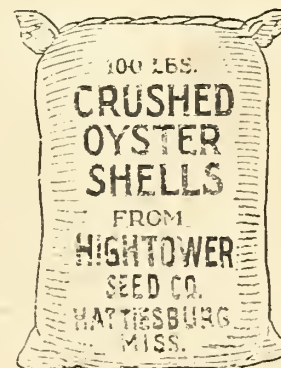 100 LBS.
CRUSHED
OYSTER
SHELLS
FROM
HIGHTOWER
SEED CO.
HATTIESBURG
MISS.